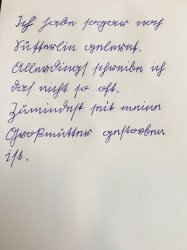 Ich habe sogar noch
Sütterlin gelernt.
Allerdings schreibe ich
das nicht so oft.
Zumindest seit meine
Großmutter gestorben
ist.